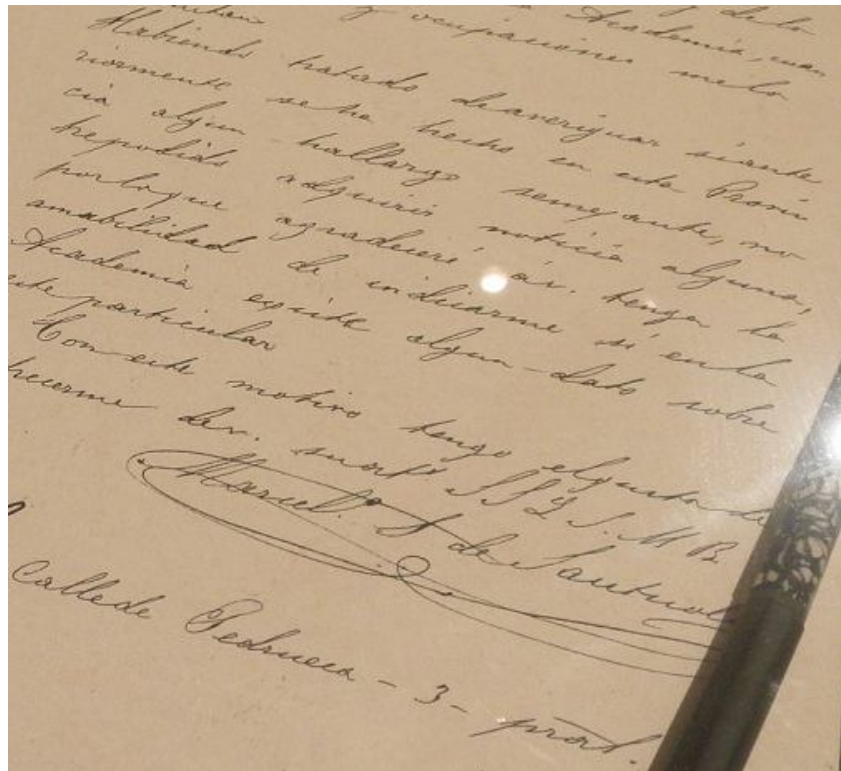 y de lo
Academia, cuan
y ocupaciones me lo
Habiendo tratado deaveriguar siante
riormente seha hecho en esta Provin
cia algun hallazgo semejante, no
hepodido adquirir noticia alguna,
porloque agradeceré áv. tenga la
amabilidad de indicarme si enla
Academia existe algun dato sobre
esteparticular
Con este motivo tengo elgustode
hacerme dev. su att.º S S Q. S. M. B.
Marcel.º S de Santuola
Callede Pedrueca - 3 - pral.